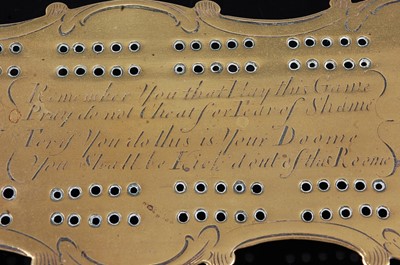 Remember You that Play this Game
Pray do not Cheat for Fear of Shame
For if You do this is Your Doome
You Shall be Kick'd out of this Roome